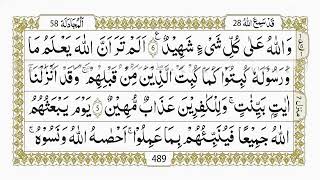 قَدْ سَمِعَ اللّٰهُ 28 اَلْمُجَادَلَة 58
وَاللّٰهُ عَلٰى كُلِّ شَىْءٍ شَهِيْدٌ ۝ اَلَمْ تَرَ اَنَّ اللّٰهَ يَعْلَمُ مَا
وَرَسُوْلَهٗ كُبِتُوْا كَمَا كُبِتَ الَّذِيْنَ مِنْ قَبْلِهِمْ وَقَدْ اَنْزَلْنَاۤ
اٰيٰتٍۭ بَيِّنٰتٍ ؕ وَلِلْكٰفِرِيْنَ عَذَابٌ مُّهِيْنٌ ۝ يَوْمَ يَبْعَثُهُمُ
اللّٰهُ جَمِيْعًا فَيُنَبِّئُهُمْ بِمَا عَمِلُوْا ؕ اَحْصٰىهُ اللّٰهُ وَنَسُوْهُ
489